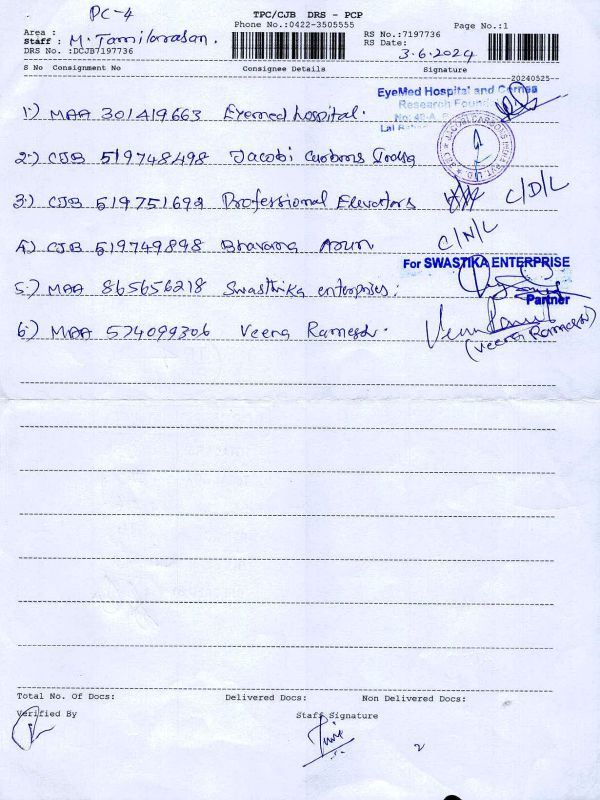 PC-4
TPC/CJB DRS - PCP
Phone No.:0422-3505555
Page No.:1
Area :
Staff : M. Tamilarasan.
DRS No. :DCJB7197736
RS No.:7197736
RS Date: 3.6.2024
S No Consignment No Consignee Details Signature
20240525
EyeMed Hospital and Cornea
Research Found
1.) MAA 301419663 Eyemed hospital.
2.) CJB 519748498 Jacobi Carbons India
3.) CJB 519751692 Professional Elevators C/D/L
4.) CJB 519749898 Bhavana Arun C/N/L
For SWASTIKA ENTERPRISE
5.) MAA 865656218 Swasthika enterprises.
Partner
6.) MAA 574099306 Veera Ramesh.
(Veera Ramesh)
Total No. Of Docs: Delivered Docs: Non Delivered Docs:
Verified By Staff Signature
2